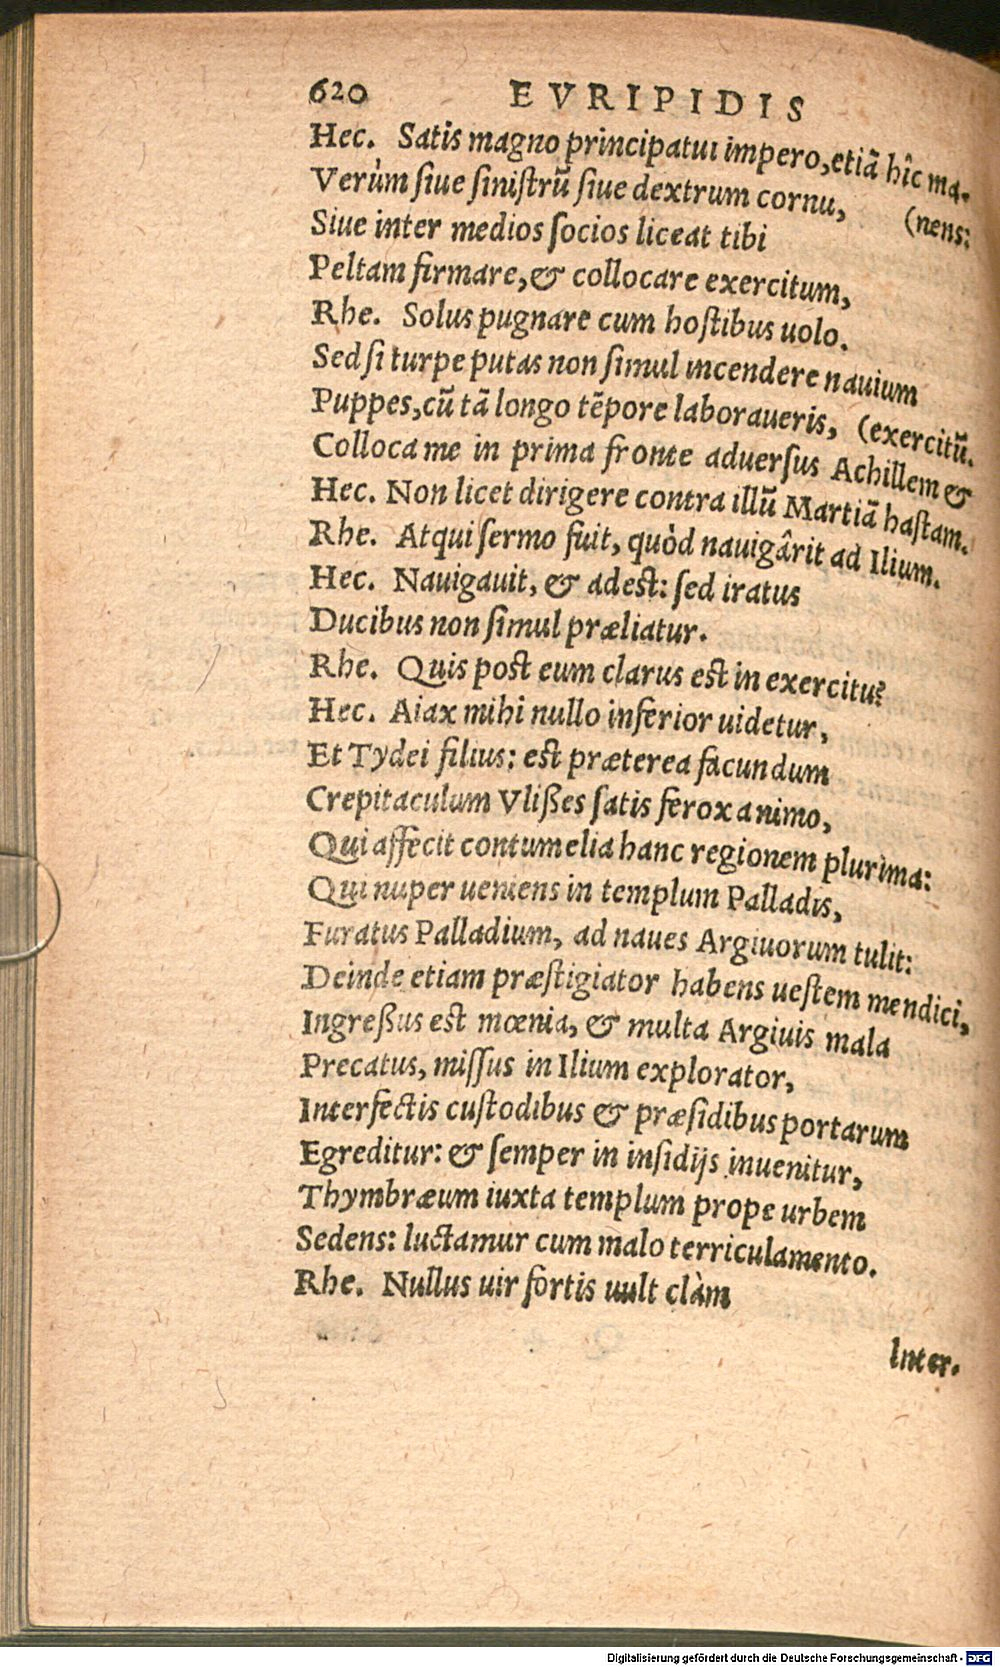 620 EVRIPIDIS
Hec. Satis magno principatui impero, etiã hîc ma-
Verùm siue sinistrũ siue dextrum cornu, (nens:
Siue inter medios socios liceat tibi
Peltam firmare, & collocare exercitum,
Rhe. Solus pugnare cum hostibus uolo.
Sed si turpe putas non simul incendere nauium
Puppes, cũ tã longo tẽpore laboraueris, (exercitũ.
Colloca me in prima fronte aduersus Achillem &
Hec. Non licet dirigere contra illũ Martiã hastam.
Rhe. Atqui sermo fuit, quòd nauigârit ad Ilium.
Hec. Nauigauit, & adest: sed iratus
Ducibus non simul præliatur.
Rhe. Quis post eum clarus est in exercitu?
Hec. Aiax mihi nullo inferior uidetur,
Et Tydei filius: est præterea facundum
Crepitaculum Vlißes satis ferox animo,
Qui affecit contumelia hanc regionem plurima:
Qui nuper ueniens in templum Palladis,
Furatus Palladium, ad naues Argiuorum tulit:
Deinde etiam præstigiator habens uestem mendici,
Ingreßus est mœnia, & multa Argiuis mala
Precatus, missus in Ilium explorator,
Interfectis custodibus & præsidibus portarum
Egreditur: & semper in insidijs inuenitur,
Thymbræum iuxta templum prope urbem
Sedens: luctamur cum malo terriculamento.
Rhe. Nullus uir fortis uult clàm
Inter-
Digitalisierung gefördert durch die Deutsche Forschungsgemeinschaft - DFG